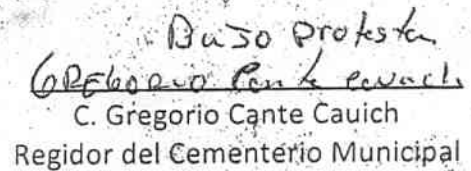 Bajo protesta
GREGORIO Cante Cauich
C. Gregorio Cante Cauich
Regidor del Cementerio Municipal